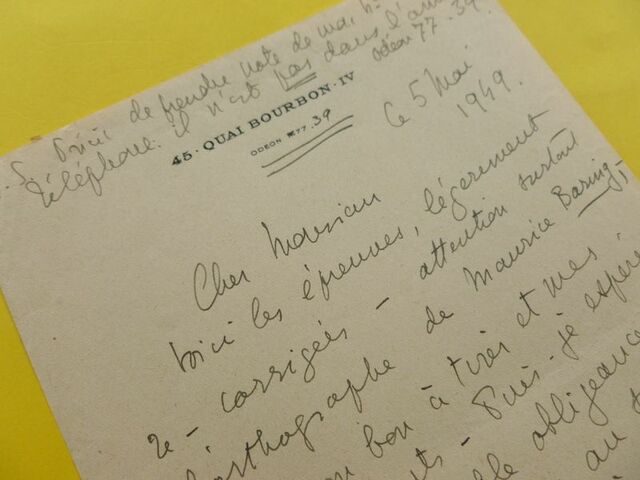 S Prière de prendre note de mon n°
téléphone. il n'est pas dans l'annu
Odéon 77.39
45 · QUAI BOURBON · IV
ODEON 77.39
le 5 Mai
1949.
Cher Monsieur
Voici les épreuves, légèrement
re-corrigées - attention surtout
orthographe de Maurice Baring,
bon à tirer et mes
ts - Puis-je espérer
le obligeance
au